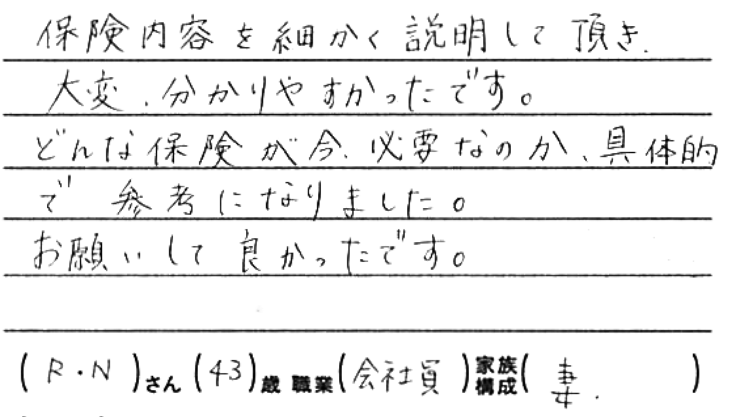 保険内容を細かく説明して頂き、
大変、分かりやすかったです。
どんな保険が今、必要なのか、具体的
で 参考になりました。
お願いして良かったです。
(R・N)さん(43)歳 職業(会社員)家族構成(妻、)